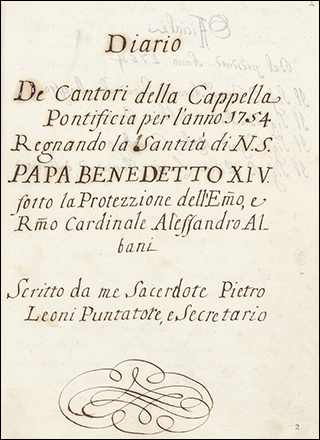 Diario
De Cantori della Cappella
Pontificia per l'anno 1754
Regnando la Santità di N.S.
PAPA BENEDETTO XIV
sotto la Protezzione dell'Emo, e
Rmo Cardinale Alessandro Al
bani
Scritto da me Sacerdote Pietro
Leoni Puntatore, e Secretario
2